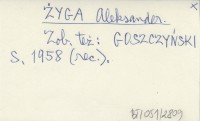 ŻYGA Aleksander.
Zob. też: GOSZCZYŃSKI
S. 1958 (rec.).